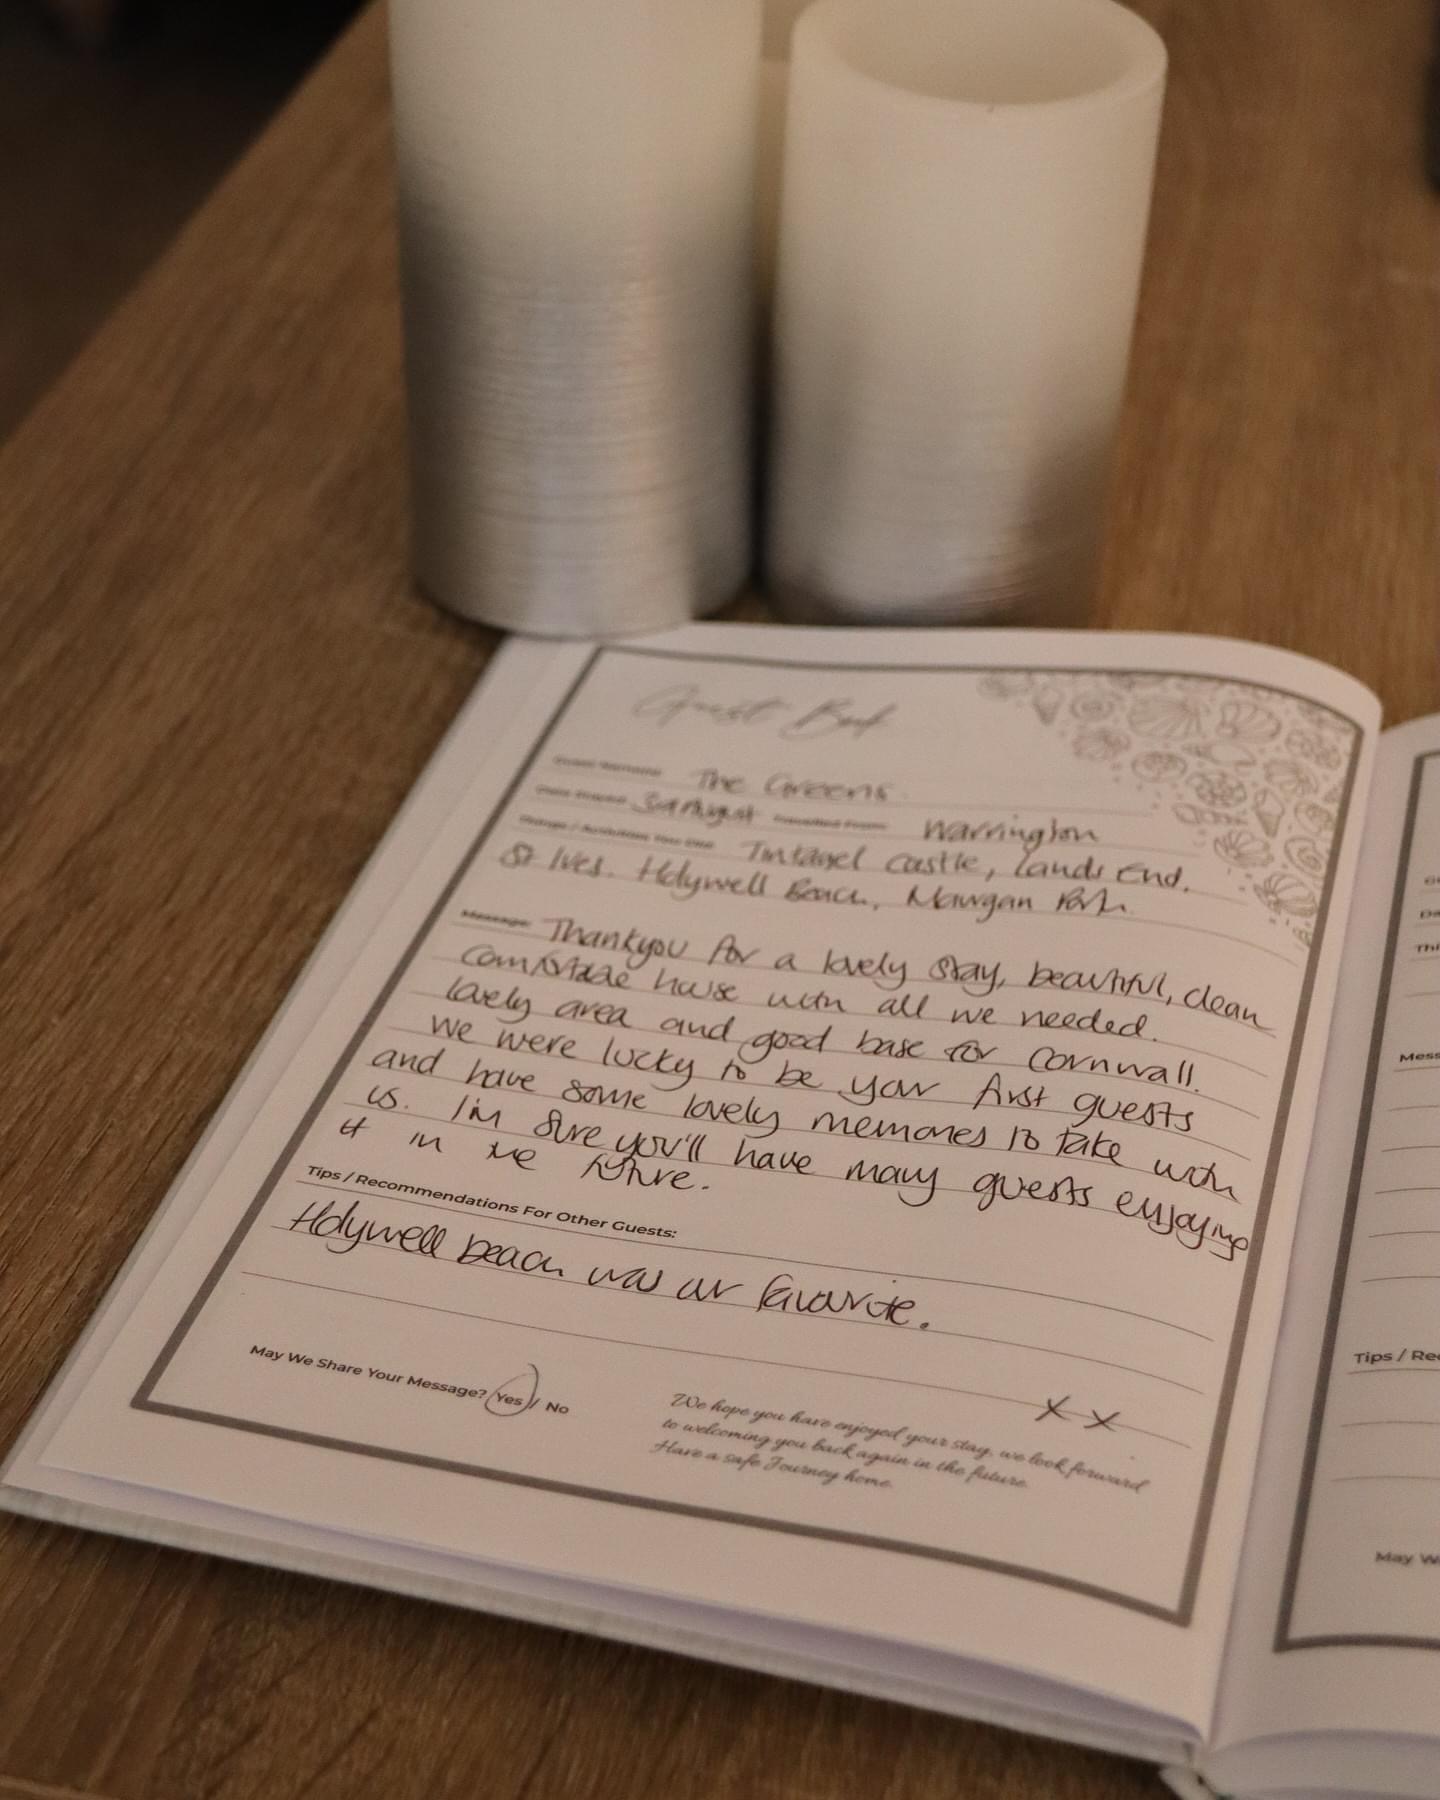 Guest Book
Guest Name(s) The Greens
Date Stayed August Travelled From Warrington
Things / Activities You Did Tintagel Castle, Lands End,
St Ives. Holywell Beach, Mawgan Porth.
Message: Thankyou for a lovely stay, beautiful, clean
comfortable house with all we needed.
lovely area and good base for Cornwall.
We were lucky to be your first guests
and have some lovely memories to take with
us. I'm sure you'll have many guests enjoying
it in the future.
Tips / Recommendations For Other Guests:
Holywell beach was our favourite.
x x
May We Share Your Message? Yes / No
We hope you have enjoyed your stay, we look forward
to welcoming you back again in the future.
Have a safe Journey home.
Da
Thi
Mess
Tips / Rec
May W